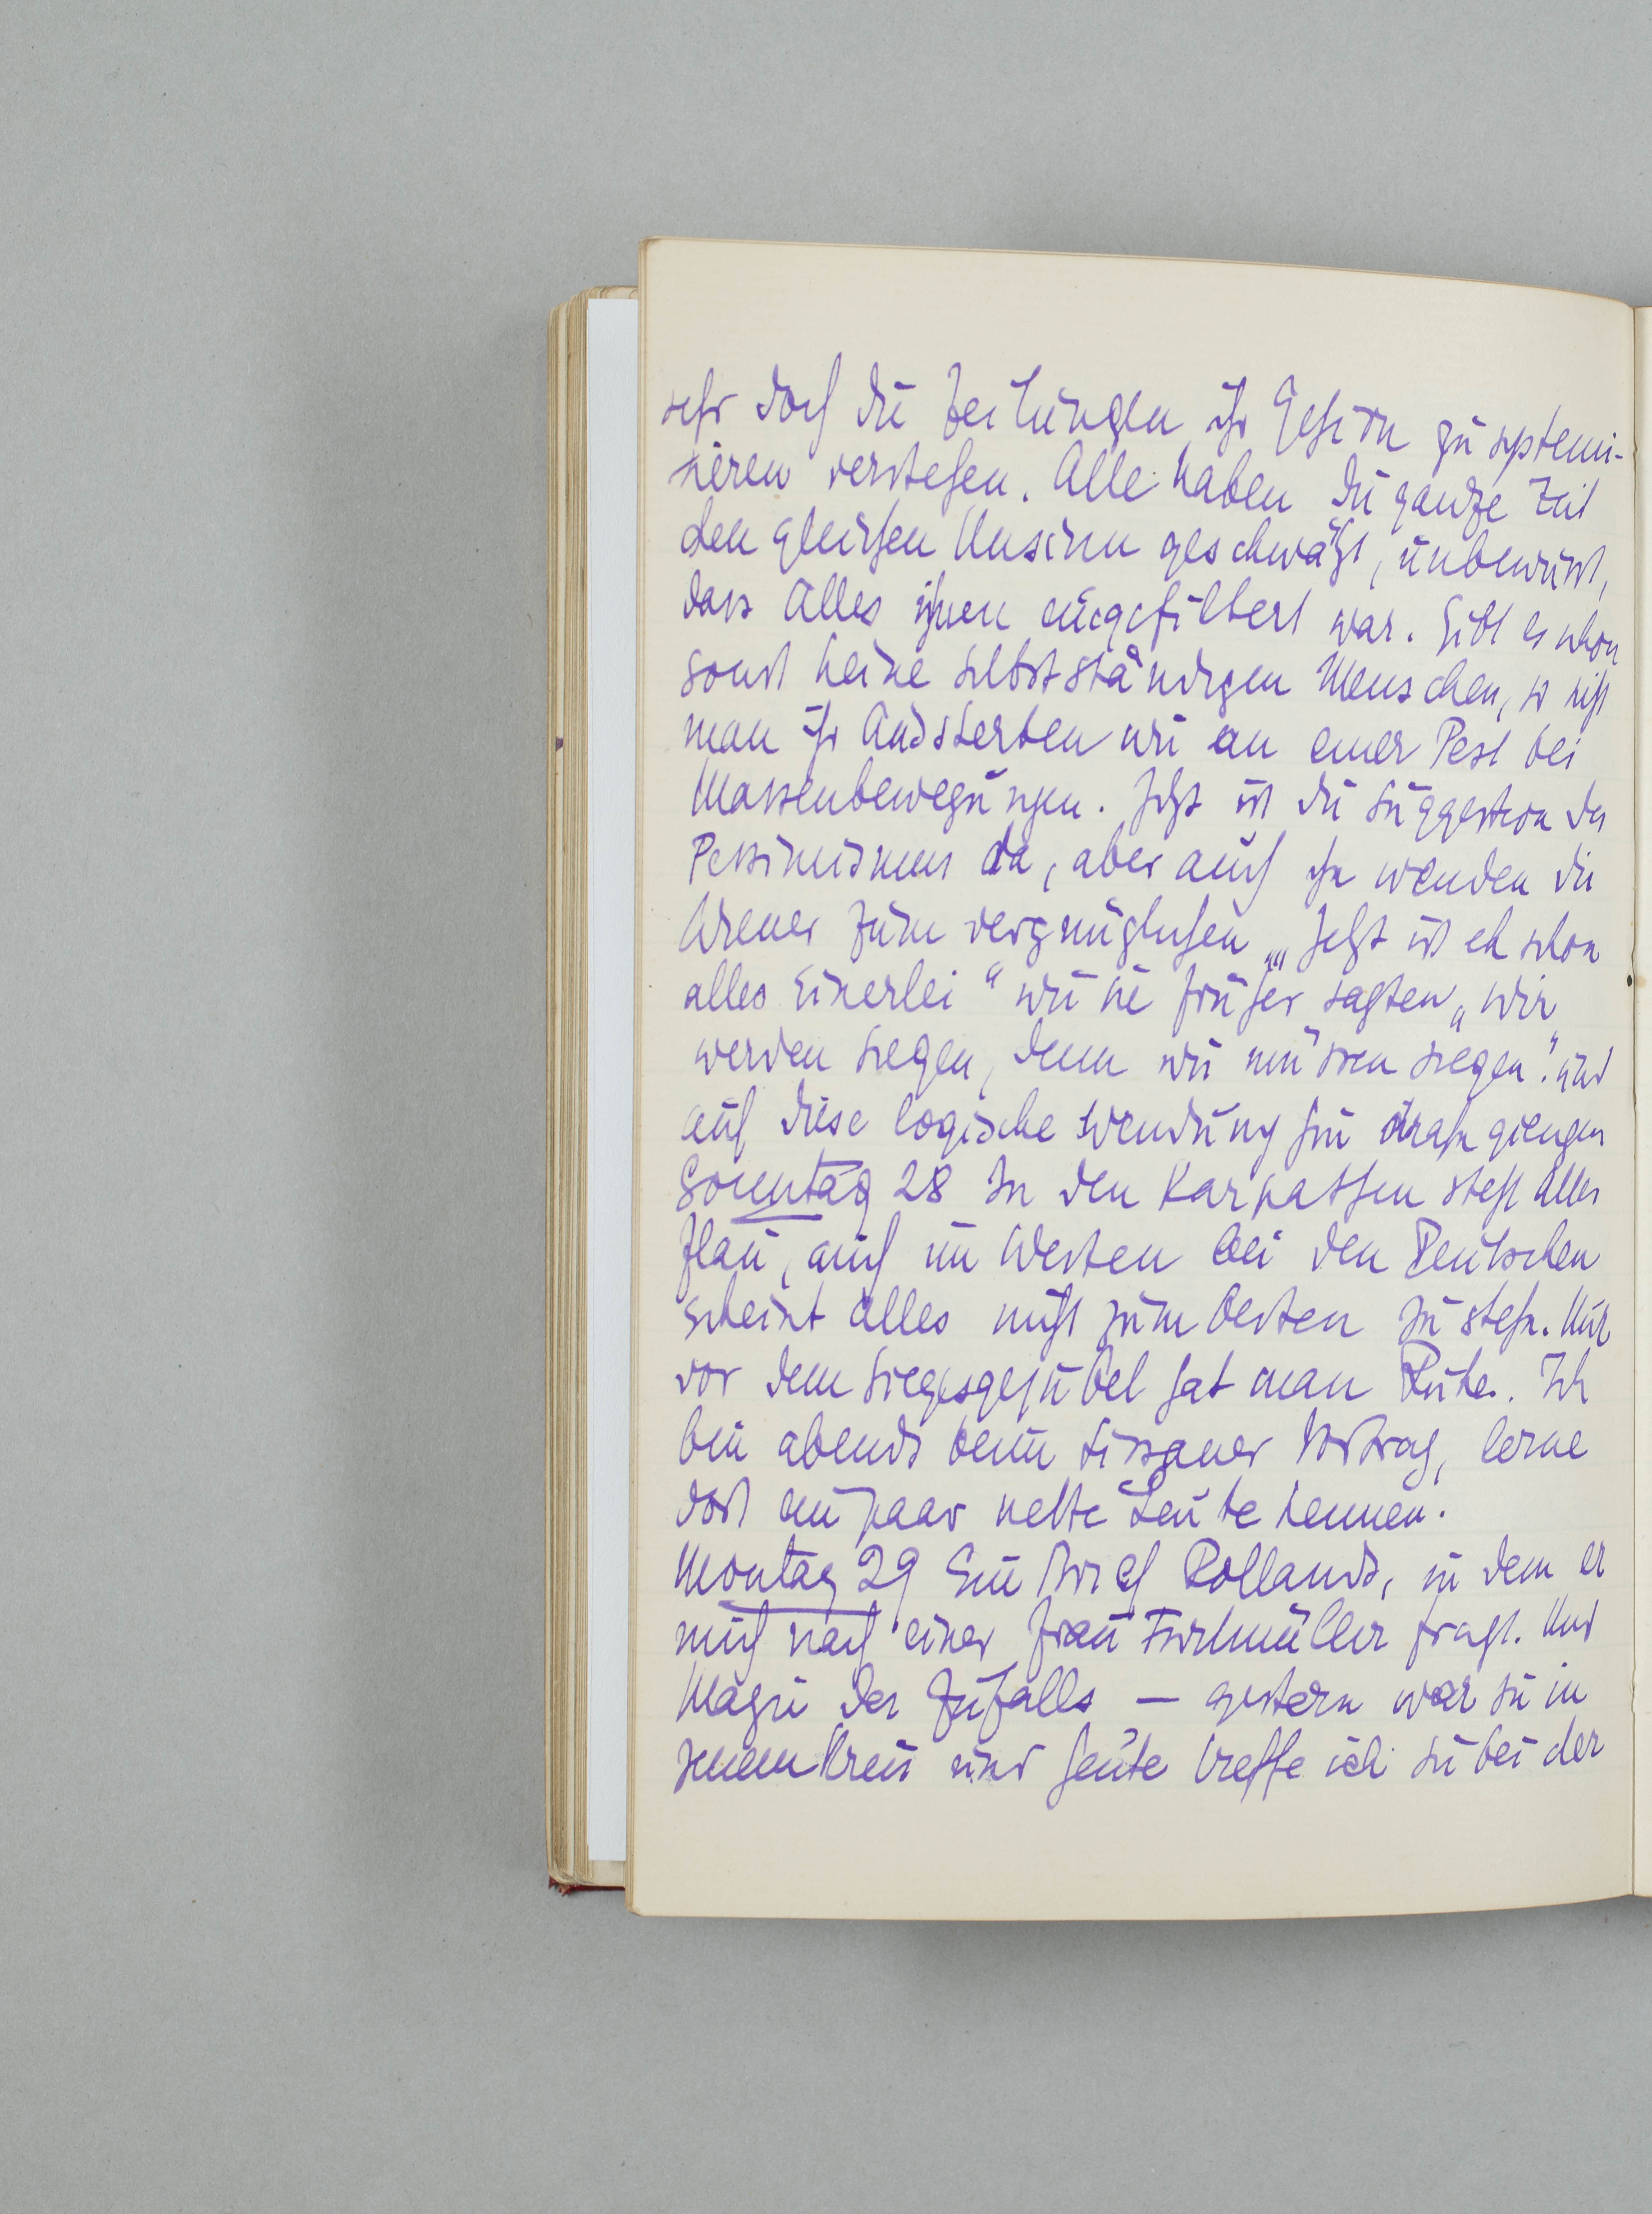 sehr doch die Zeitungen ihr Gehirn zu systemi-
sieren verstehen. Alle haben die ganze Zeit
den gleichen Unsinn geschwätzt, unbewusst,
dass Alles ihnen eingefiltert war. Gibt es schon
sonst keine selbstständigen Menschen, so sieht
man ihr Aussterben wie an einer Pest bei
Massenbewegungen. Jetzt ist die Suggestion des
Pessimismus da, aber auch ihn wenden die
Wiener zum vergnüglichen „„Jetzt ist eh schon
alles Einerlei“ wie sie früher sagten „wir
werden siegen, denn wir müssen siegen.“ und
auf diese logische Wendung hin drauf giengen
Sonntag 28 In den Karpathen steht Alles
flau, auch im Westen bei den Deutschen
scheint alles nicht zum besten zu stehn. Nur
vor dem Siegesgejubel hat man Ruhe. Ich
bin abends beim Lissauer Vortrag, lerne
dort ein paar nette Leute kennen.
Montag 29 Ein Brief Rollands, in dem er
mich nach einer Frau Furtmüller fragt. Und
Magie des Zufalls — gestern war sie in
jenem Kreis und heute treffe ich sie bei der